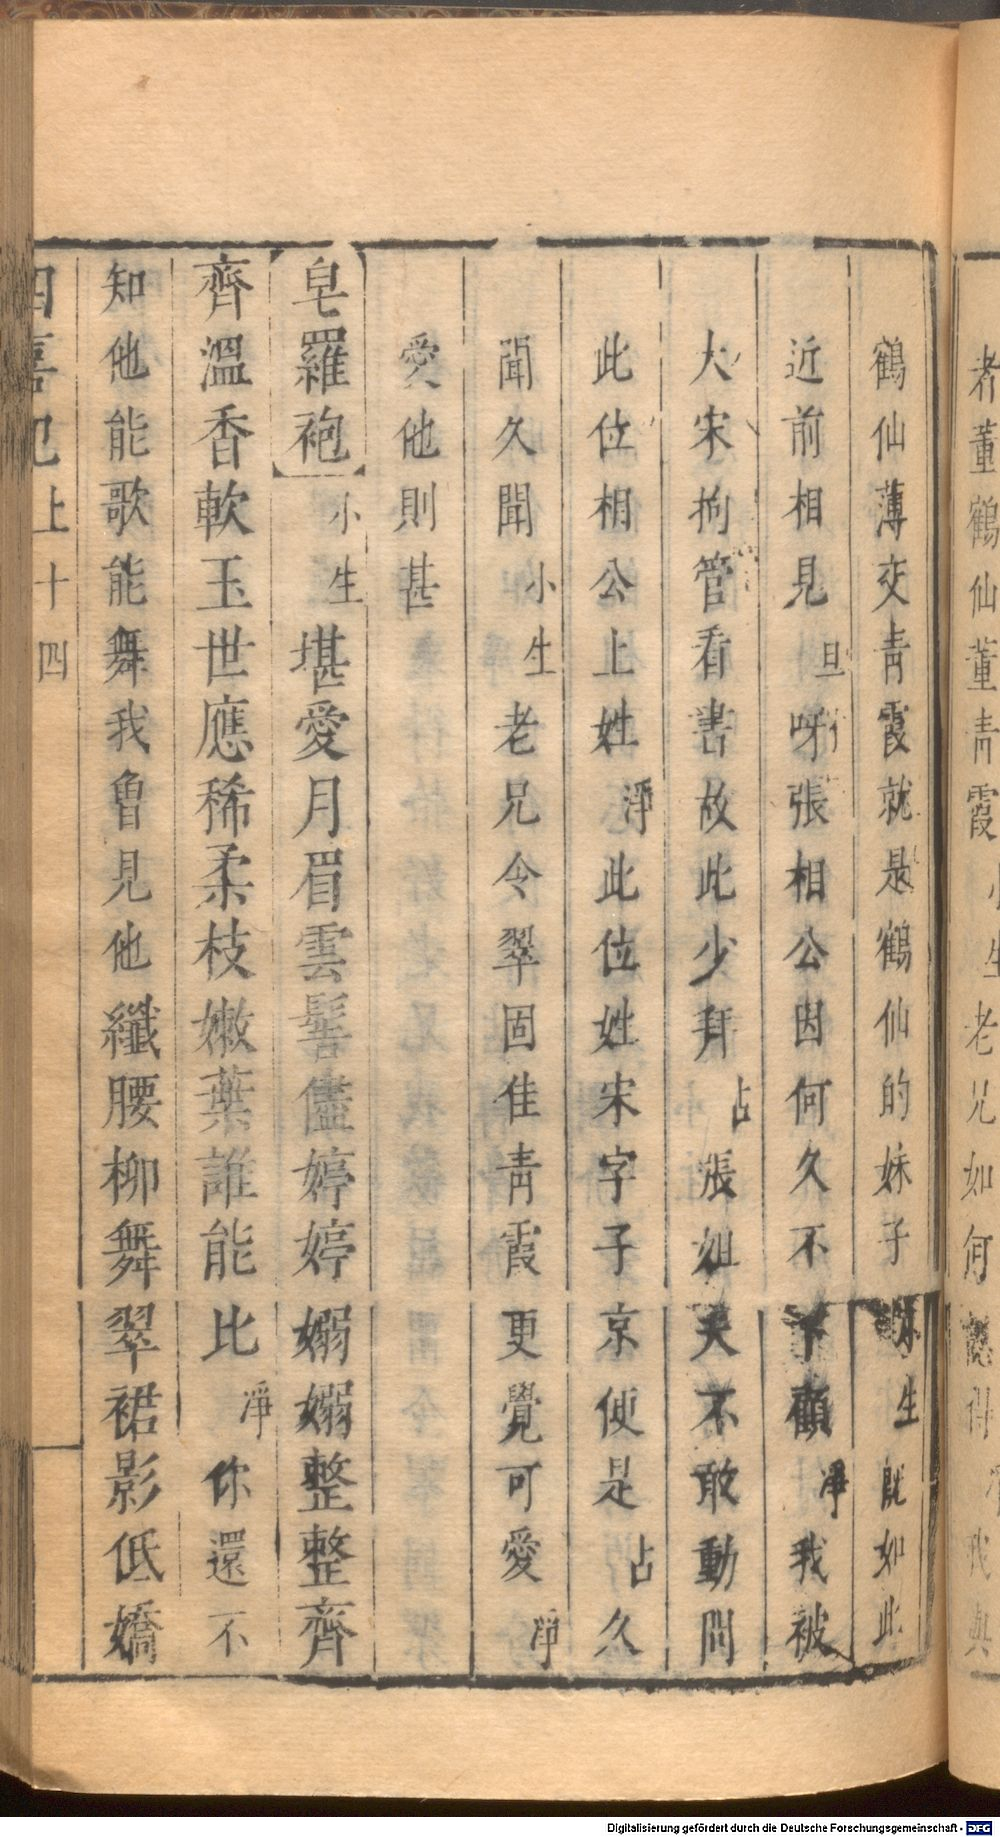 鶴仙薄交靑霞就是鶴仙的妹子小生旣如此
近前相見旦呀張相公因何久不下顧淨我被
大宋拘管看書故此少拜占張姐夫不敢動問
此位相公上姓淨此位姓宋字子京便是占久
聞久聞小生老兄令翠固佳靑霞更覺可愛淨
愛他則甚
皂羅袍小生堪愛月眉雲髻儘婷婷嫋嫋整整齊
齊溫香軟玉世應稀柔枝嫩葉誰能比淨你還不
知他能歌能舞我曾見他纖腰柳舞翠裙影低嬌
四喜記上十四
者董鶴仙董靑霞小生老兄如何認得淨我與
Digitalisierung gefördert durch die Deutsche Forschungsgemeinschaft - DFG